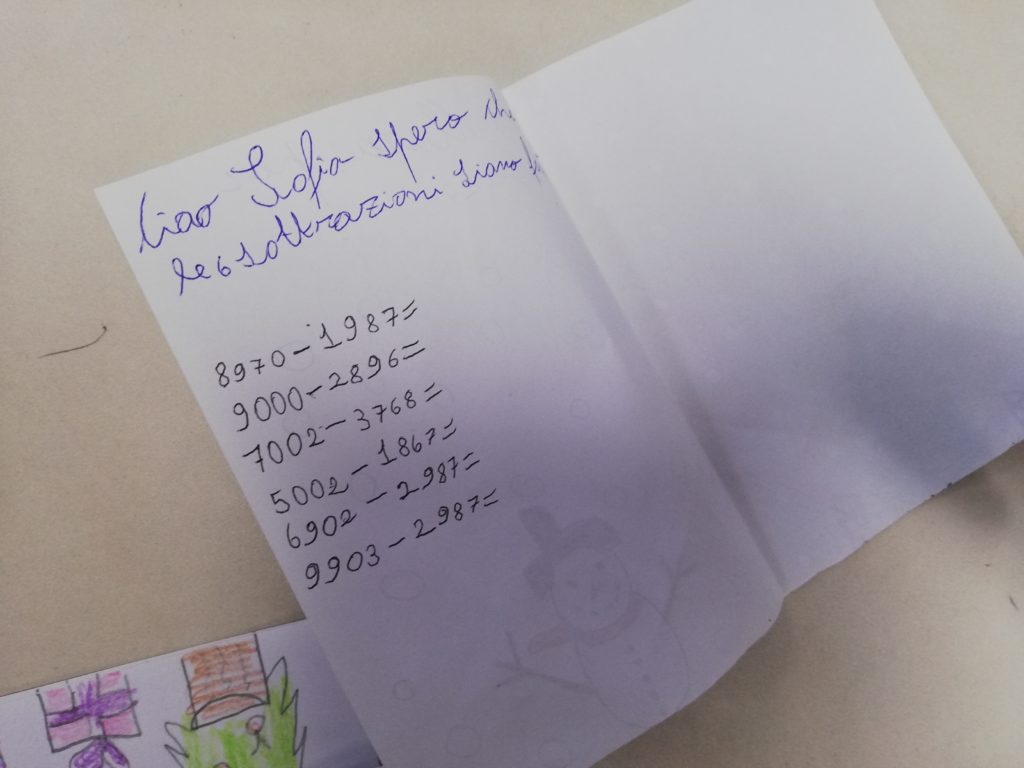 Ciao Sofia spero
le 6 sottrazioni siano
8970-1987=
9000-2896=
7002-3768=
5002-1867=
6902-2987=
9903-2987=